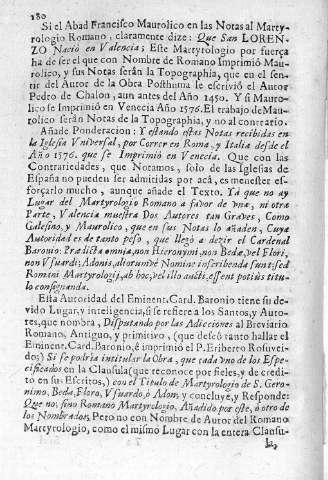 180
Si el Abad Francisco Maurolico en las Notas al Marty-
rologio Romano, claramente dize: Que San LOREN-
ZO Nació en Valencia; Este Martyrologio por fuerça
ha de ser el que con Nombre de Romano Imprimió Mau-
rolico, y sus Notas serán la Topographia, que en el sen-
tir del Autor de la Obra Posthuma se escrivió el Autor
Pedro de Chalon, aun antes del Año 1450. Y si Mauro-
lico se Imprimió en Venecia Año 1576. El trabajo de Mau-
rolico serán Notas de la Topographia, y no al contrario.
Añade Ponderacion: Y estando estas Notas recibidas en
la Iglesia Vniversal, por Correr en Roma, y Italia desde el
Año 1576. que se Imprimió en Venecia. Que con las
Contrariedades, que Notamos, solo de las Iglesias de
España no pueden ser admitidas por acá, es menester es-
forçarlo mucho, aunque añade el Texto. Yá que no ay
Lugar del Martyrologio Romano à favor de vna, ni otra
Parte, Valencia muestra Dos Autores tan Graves, Como
Galesino, y Maurolico, que en sus Notas lo añaden, Cuya
Autoridad es de tanto peso, que llegó a dezir el Cardenal
Baronio: Prædicta omnia, non Hieronymi, non Bedæ, vel Flori,
non Vsuardi, Adonis, aliorumvè Nomine inscribenda sunt: sed
Romani Martyrologij, ab hoc, vel illo aucti, essent potiùs titulo
consignanda.
Esta Autoridad del Eminent. Card. Baronio tiene su de-
vido Lugar, y inteligencia, si se refiere a los Santos, y Auto-
res, que nombra, Disputando por las Adicciones al Breviario
Romano, Antiguo, y primitivo, (que deseó tanto hallar el
Eminent. Card. Baronio, è imprimió el P. Eriberto Rosuvei-
dos;) Si se podria intitular la Obra, que cada vno de los Espe-
cificados en la Clausula (que reconoce por fieles, y de credi-
to en sus Escritos,) con el Titulo de Martyrologio de S. Gero-
nimo, Beda, Floro, Vsuardo, ò Adon; y concluye, y Responde:
Que no; sino Romano Martyrologio, Añadido por este, ò otro de
los Nombrados; Pero no con Nombre de Autor del Romano
Martyrologio, como el mismo Lugar con la entera Clausu-
la,